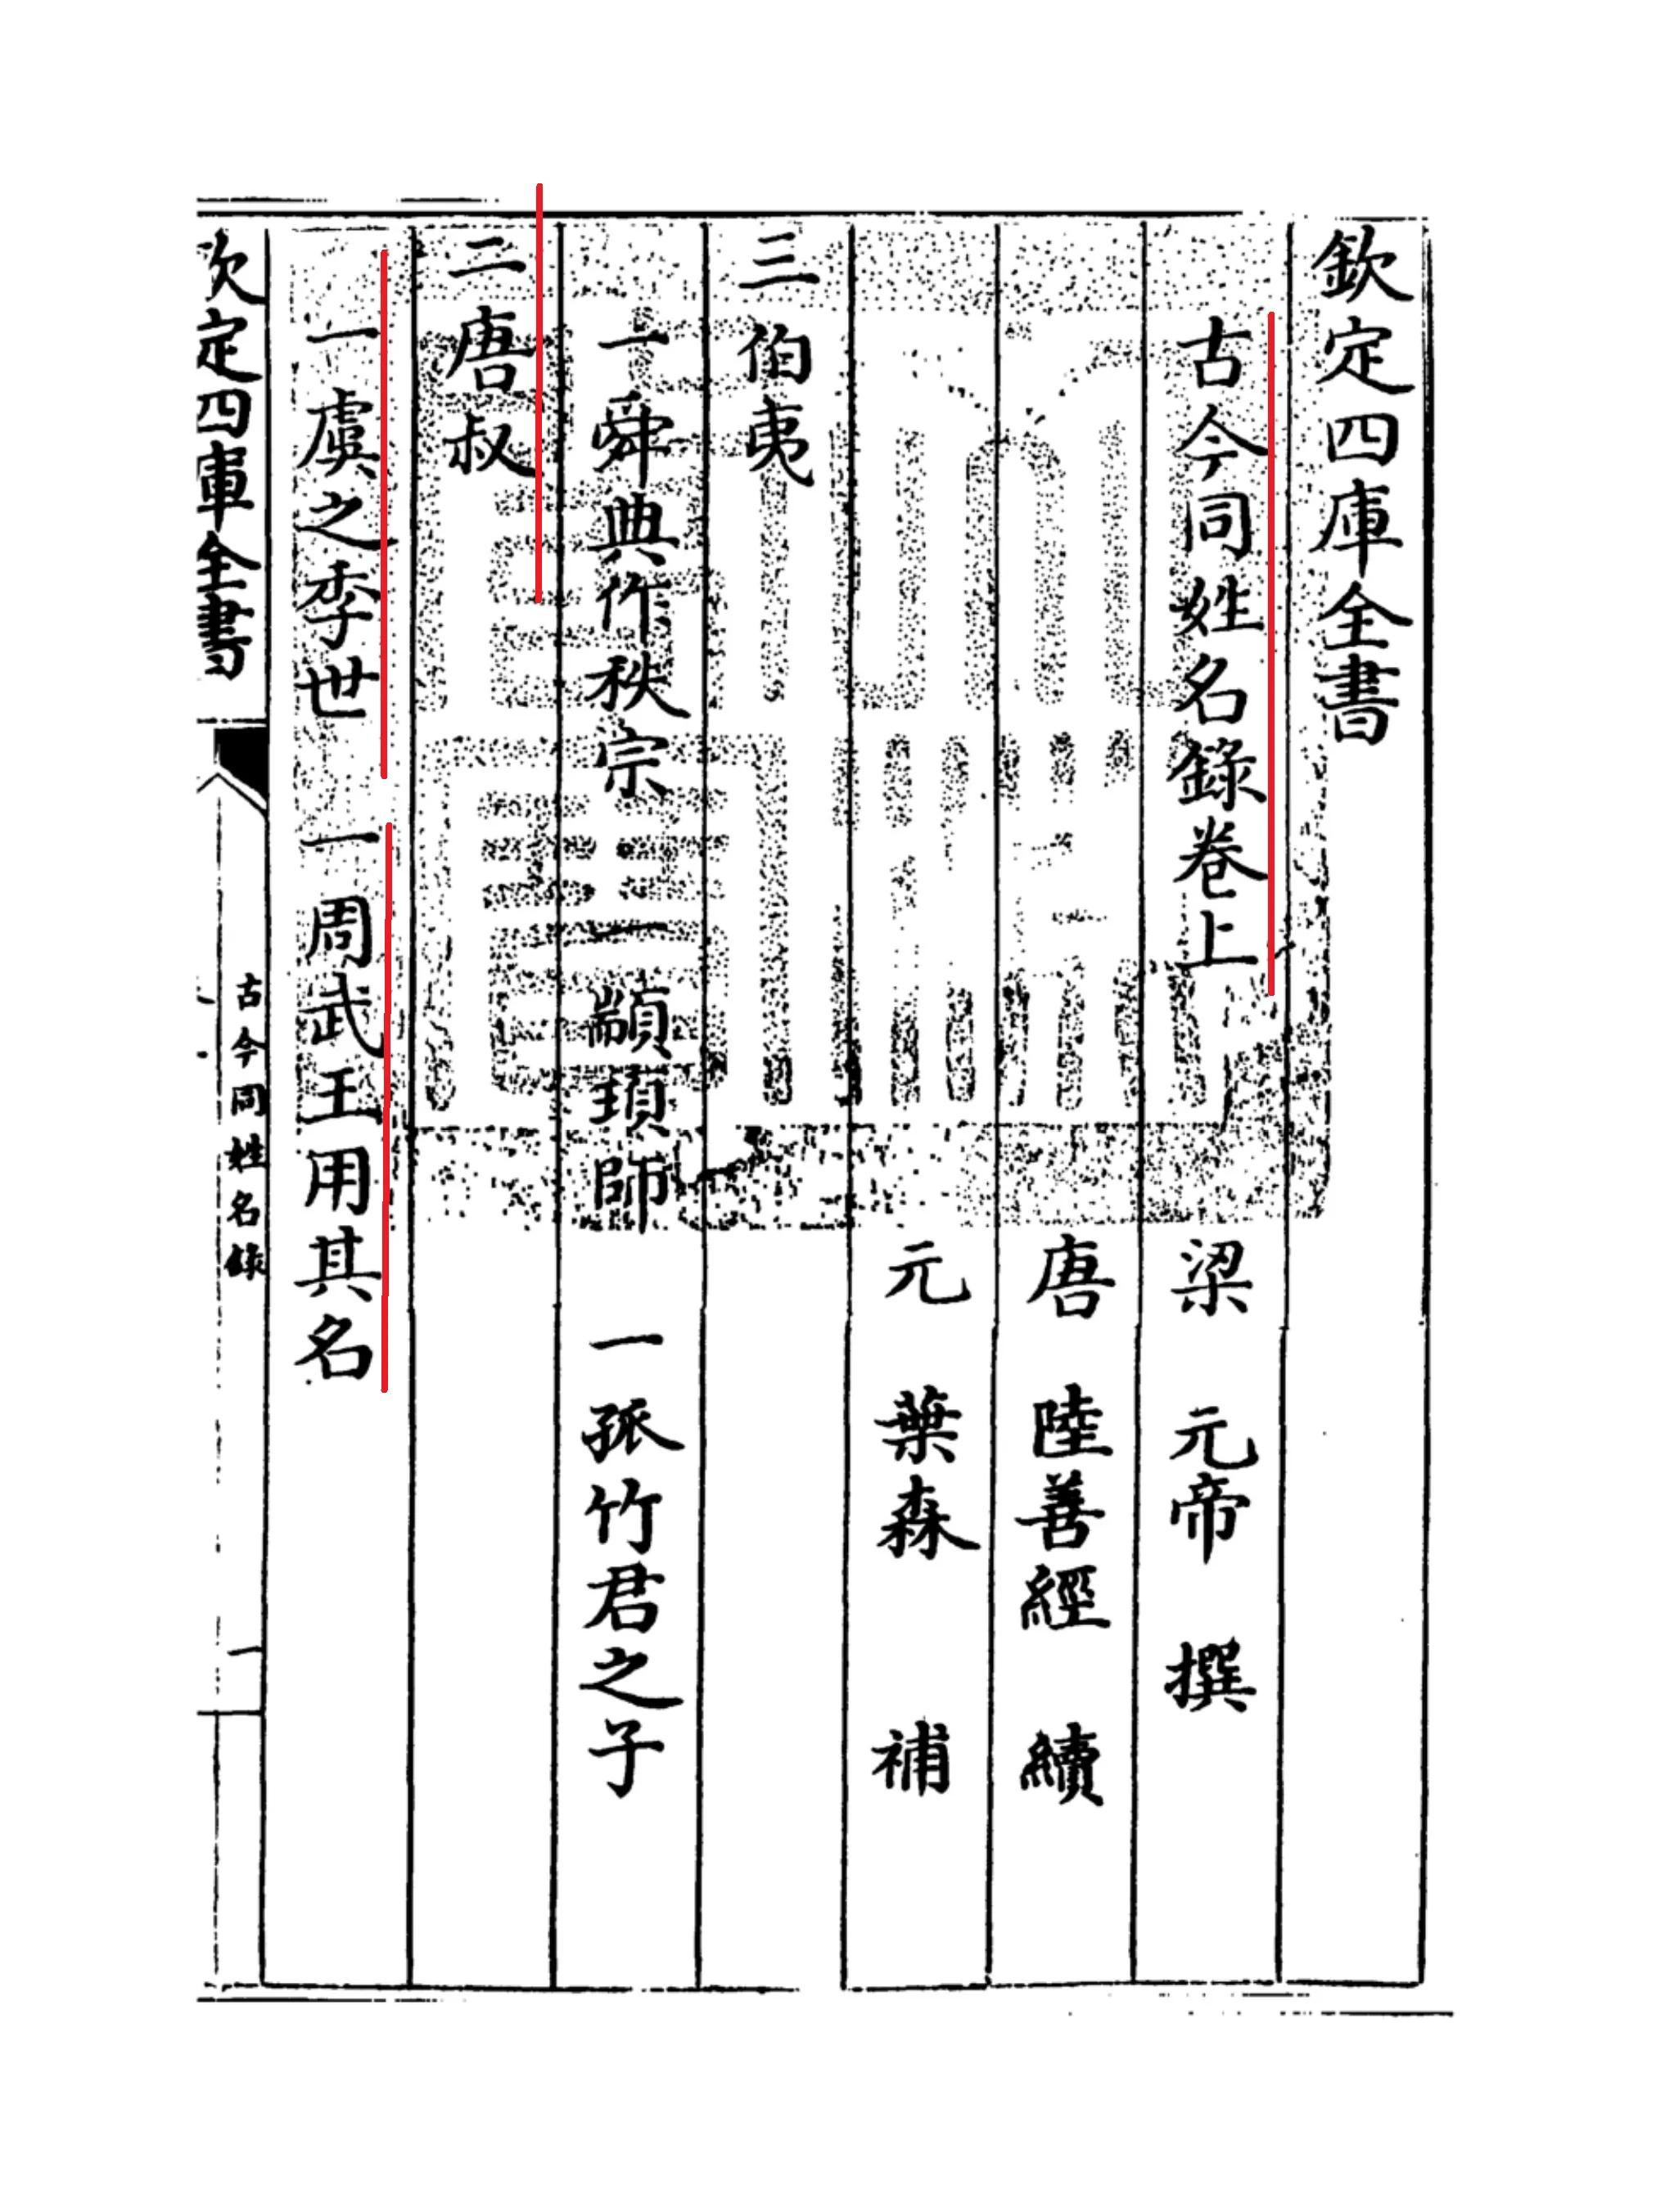 欽定四庫全書
古今同姓名錄卷上
梁 元帝 撰
唐 陸善經 續
元 葉森 補
三伯夷
一舜典作秩宗 一顓頊師 一孤竹君之子
二唐叔
一虞之季世 一周武王用其名
欽定四庫全書
古今同姓名錄
一